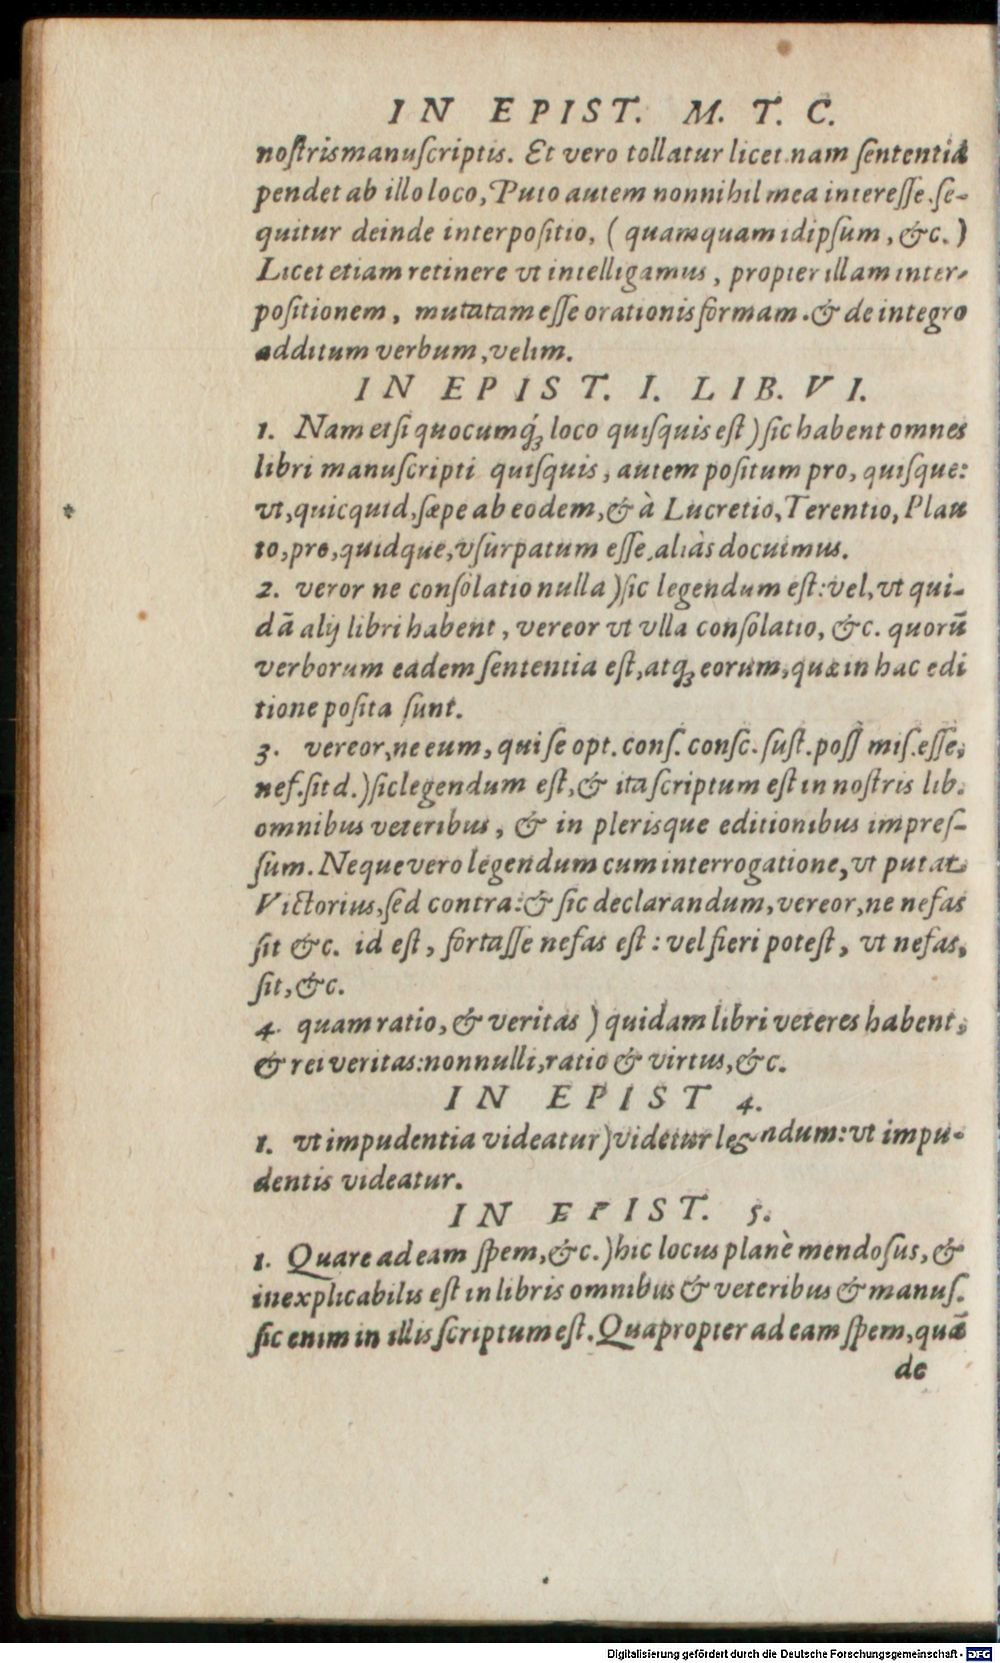 IN EPIST. M. T. C.
noſtris manuſcriptis. Et vero tollatur licet. nam ſententia
pendet ab illo loco, Puto autem nonnihil mea intereſſe. ſe-
quitur deinde interpoſitio, ( quamquam idipſum, &c. )
Licet etiam retinere vt intelligamus, propter illam inter-
poſitionem, mutatam eſſe orationis formam. & de integro
additum verbum, velim.
IN EPIST. I. LIB. VI.
1. Nam etſi quocumq́ꝫ loco quiſquis eſt ) ſic habent omnes
libri manuſcripti quiſquis, autem poſitum pro, quiſque:
vt, quicquid, ſæpe ab eodem, & à Lucretio, Terentio, Plau
to, pro, quidque, vſurpatum eſſe, aliàs docuimus.
2. veror ne conſolatio nulla ) ſic legendum eſt: vel, vt qui-
dā alij libri habent, vereor vt vlla conſolatio, &c. quorū
verborum eadem ſententia eſt, atqꝫ eorum, quæ in hac edi
tione poſita ſunt.
3. vereor, ne eum, qui ſe opt. conſ. conſc. ſuſt. poſſ miſ. eſſe,
neſ. ſit d. ) ſic legendum eſt, & ita ſcriptum eſt in noſtris lib.
omnibus veteribus, & in plerisque editionibus impreſ-
ſum. Neque vero legendum cum interrogatione, vt putat
Victorius, ſed contra: & ſic declarandum, vereor, ne nefas
ſit &c. id eſt, fortaſſe nefas eſt: vel fieri poteſt, vt nefas,
ſit, &c.
4. quam ratio, & veritas ) quidam libri veteres habent,
& rei veritas: nonnulli, ratio & virtus, &c.
IN EPIST 4.
1. vt impudentia videatur) videtur legendum: vt impu-
dentis videatur.
IN EPIST. 5.
1. Quare ad eam ſpem, &c. ) hic locus planè mendoſus, &
inexplicabilis eſt in libris omnibus & veteribus & manuſ.
ſic enim in illis ſcriptum eſt. Quapropter ad eam ſpem, quā
de
Digitalisierung gefördert durch die Deutsche Forschungsgemeinschaft - DFG